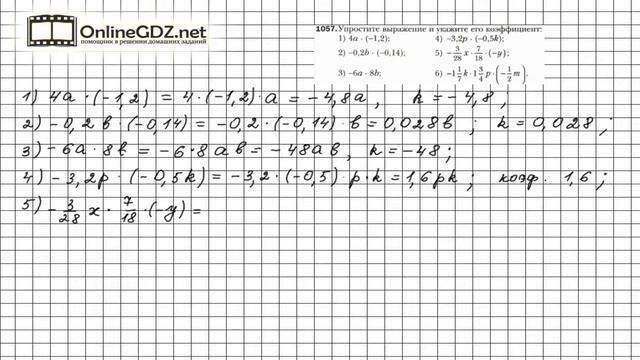 OnlineGDZ.net
помощник в решении домашних заданий
1057. Упростите выражение и укажите его коэффициент:
1) 4a · (-1,2); 4) -3,2p · (-0,5k);
2) -0,2b · (-0,14); 5) -3/28 x · 7/18 · (-y);
3) -6a · 8b; 6) -1 1/7 k · 1 3/4 p · (-1/2 m).
1) 4a · (-1,2) = 4 · (-1,2) · a = -4,8a, k = -4,8;
2) -0,2в · (-0,14) = -0,2 · (-0,14) · в = 0,028в; k = 0,028;
3) -6a · 8в = -6 · 8 aв = -48aв, k = -48;
4) -3,2p · (-0,5k) = -3,2 · (-0,5) · p · k = 1,6pk; коэф. 1,6;
5) -3/28 x · 7/18 · (-y) =